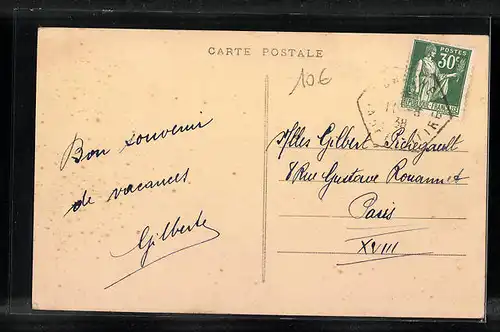 CARTE POSTALE
10€
POSTES
30c
REPUBLIQUE FRANCAISE
38
Bon souvenir
de vacances
Gilberte
Mlles Gilbert Pichegault
8 Rue Gustave Rouannet
Paris
XVIII